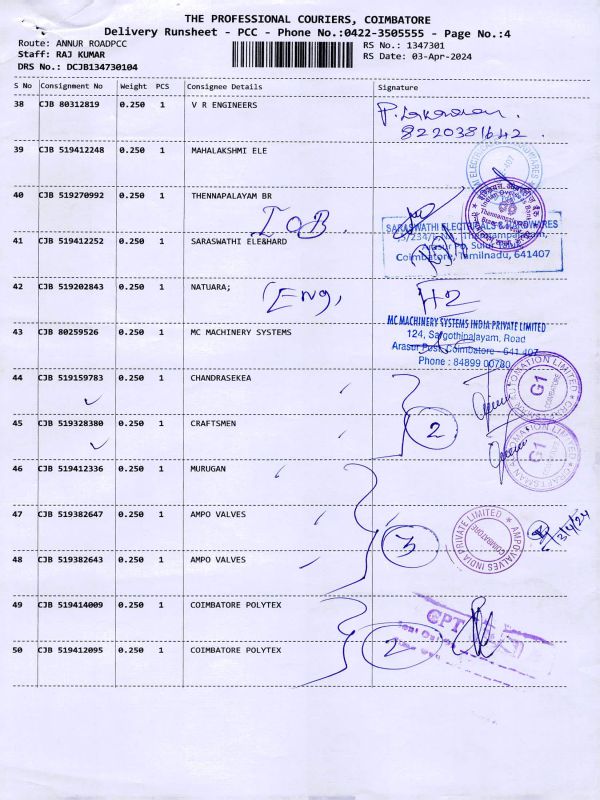 THE PROFESSIONAL COURIERS, COIMBATORE
Delivery Runsheet - PCC - Phone No.:0422-3505555 - Page No.:4
Route: ANNUR ROADPCC
RS No.: 1347301
Staff: RAJ KUMAR
RS Date: 03-Apr-2024
DRS No.: DCJB134730104
S No Consignment No Weight PCS Consignee Details Signature
38 CJB 80312819 0.250 1 V R ENGINEERS
8220381642
39 CJB 519412248 0.250 1 MAHALAKSHMI ELE
40 CJB 519270992 0.250 1 THENNAPALAYAM BR
IOB
SARASWATHI ELECTRICALS & HARDWARES
41 CJB 519412252 0.250 1 SARASWATHI ELE&HARD
Coimbatore, Tamilnadu, 641407
42 CJB 519202843 0.250 1 NATUARA;
(Eng,
H2
MC MACHINERY SYSTEMS INDIA PRIVATE LIMITED
43 CJB 80259526 0.250 1 MC MACHINERY SYSTEMS
124, Sargothipalayam, Road
Arasur Post, Coimbatore - 641 407
Phone : 84899 00780
44 CJB 519159783 0.250 1 CHANDRASEKEA
CRAFTSMAN AUTOMATION LIMITED
G1
COIMBATORE
45 CJB 519328380 0.250 1 CRAFTSMEN
2
CRAFTSMAN AUTOMATION LIMITED
G1
COIMBATORE
46 CJB 519412336 0.250 1 MURUGAN
47 CJB 519382647 0.250 1 AMPO VALVES
3
AMPO VALVES INDIA PRIVATE LIMITED
COIMBATORE
3/4/24
48 CJB 519382643 0.250 1 AMPO VALVES
49 CJB 519414009 0.250 1 COIMBATORE POLYTEX
CPT
50 CJB 519412095 0.250 1 COIMBATORE POLYTEX
2